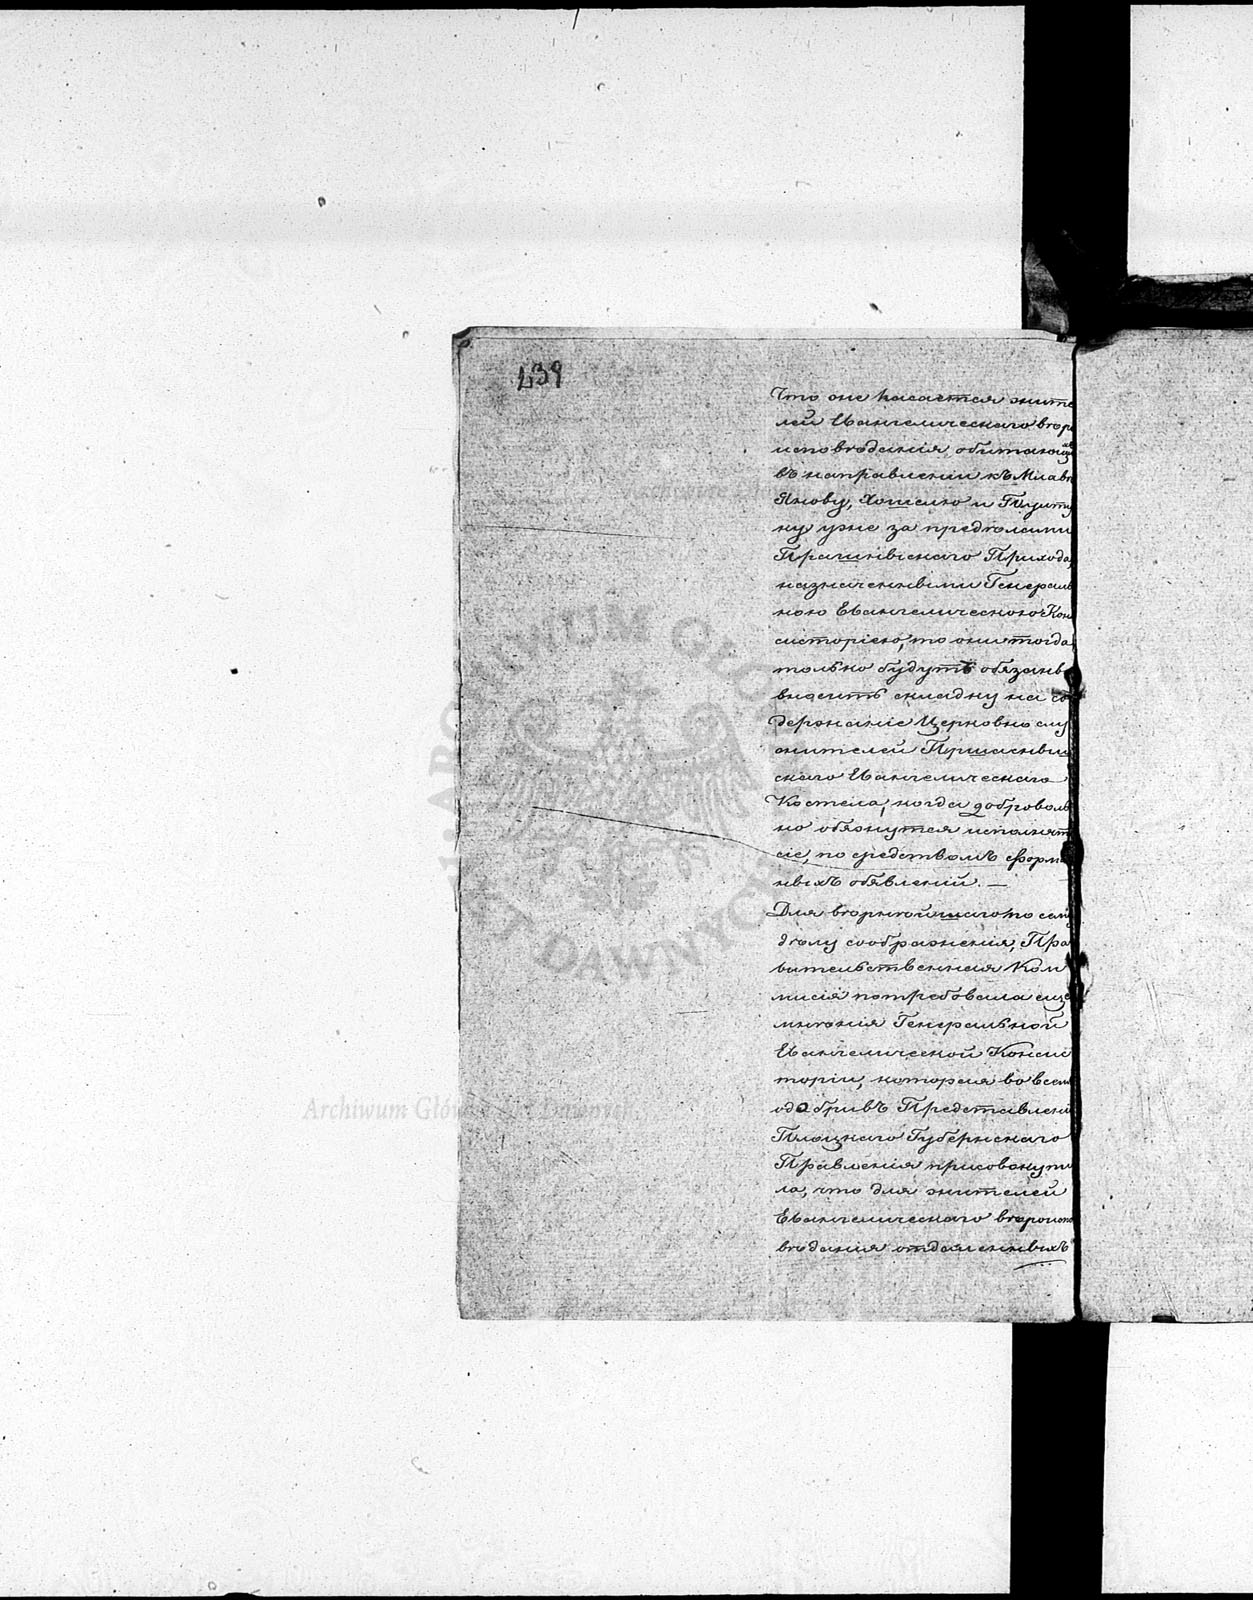 439
Что оно касается жите
лей Евангелическаго вѣро
исповѣданія обитающих
въ направленіи къ Млавѣ
Янову, Хожелю и Пулту
ску уже за предѣлами
Прашнѣвскаго Прихода,
назначенными Генераль
ною Евангелическою Кон
систоріею, то они тогда
только будутъ обязаны
вносить складку на со
держаніе Церковно слу
жителей Пршасныш
скаго Евангелическаго
Костела, когда доброволь
но обяжутся исполнять
сіе, по средствомъ форм
ныхъ обявленій. —
Для вѣрнѣйшаго по сему
дѣлу соображенія, Пра
вительственная Ком
мисія потребовала еще
мнѣнія Генеральной
Евангелической Консис
торіи, которая во всем
одобривъ Представленіе
Плоцкаго Губернскаго
Правленія присовокупи
ла, что для жителей
Евангелическаго вѣроиспо
вѣданія отдаленныхъ
ARCHIWUM GŁÓ
DAWNYCH
Archiwum Główne Akt Dawnych